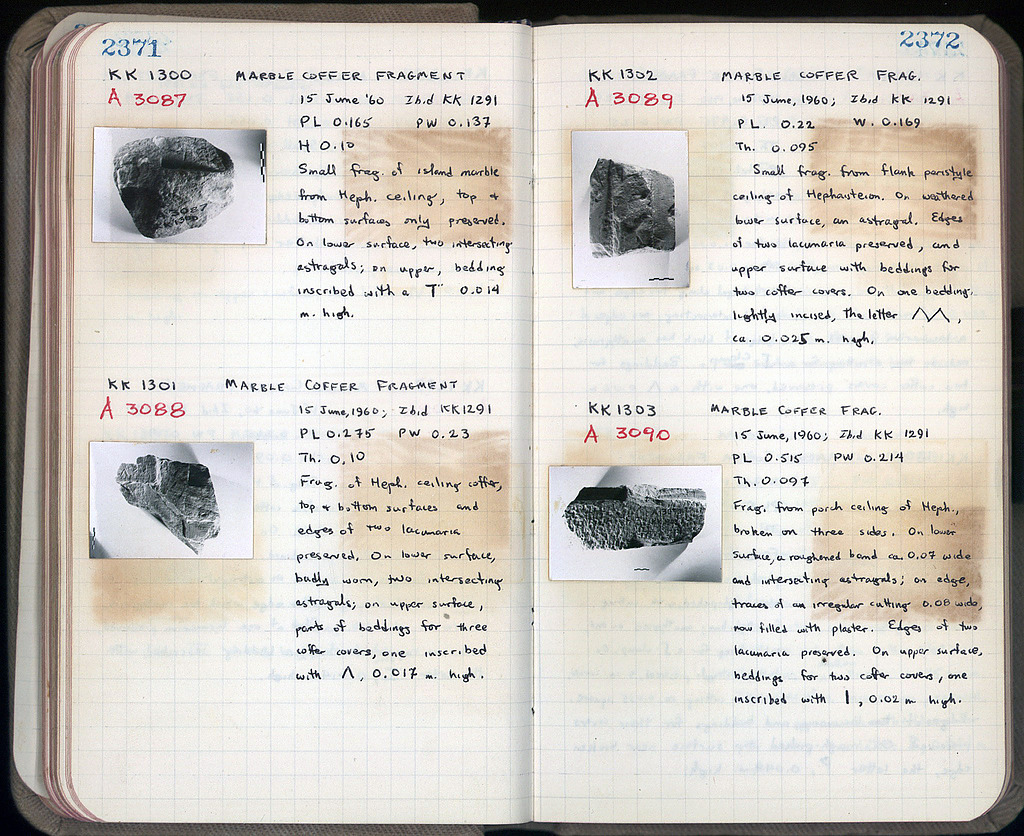 2371
KK 1300 MARBLE COFFER FRAGMENT
A 3087 15 June '60 Ibid KK 1291
PL 0.165 PW 0.137
H 0.10
Small frag. of island marble
from Heph. ceiling, top &
bottom surfaces only preserved.
On lower surface, two intersecting
astragals; on upper, bedding
inscribed with a T 0.014
m. high.
3087
KK 1301 MARBLE COFFER FRAGMENT
A 3088 15 June, 1960; Ibid KK 1291
PL 0.275 PW 0.23
Th. 0.10
Frag. of Heph. ceiling coffer,
top & bottom surfaces and
edges of two lacunaria
preserved. On lower surface,
badly worn, two intersecting
astragals; on upper surface,
parts of beddings for three
coffer covers, one inscribed
with Λ, 0.017 m. high.
2372
KK 1302 MARBLE COFFER FRAG.
A 3089 15 June, 1960; Ibid KK 1291
PL. 0.22 W. 0.169
Th. 0.095
Small frag. from flank peristyle
ceiling of Hephaisteion. On weathered
lower surface, an astragal. Edges
of two lacunaria preserved, and
upper surface with beddings for
two coffer covers. On one bedding,
lightly incised, the letter ΛΛ,
ca. 0.025 m. high.
KK 1303 MARBLE COFFER FRAG.
A 3090 15 June, 1960; Ibid KK 1291
PL 0.515 PW 0.214
Th. 0.097
Frag. from porch ceiling of Heph.,
broken on three sides. On lower
surface, a roughened band ca. 0.07 wide
and intersecting astragals; on edge,
traces of an irregular cutting 0.08 wide,
now filled with plaster. Edges of two
lacunaria preserved. On upper surface,
beddings for two coffer covers, one
inscribed with I, 0.02 m high.